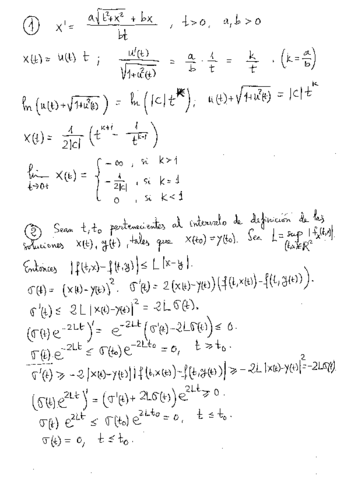 ① x' = (a√(t²+x²) + bx) / (bt) , t>0, a, b > 0
x(t) = u(t) t ; u'(t)/√(1+u²(t)) = a/b · 1/t = k/t . (k = a/b)
ln(u(t)+√(1+u²(t))) = ln(|c| t^k) , u(t)+√(1+u²(t)) = |c| t^k
x(t) = 1/(2|c|) (t^(k+1) - 1/t^(k-1))
lim t→0+ x(t) = { -∞, si k>1
-1/(2|c|) , si k=1
0 , si k<1
② Sean t, t₀ pertenecientes al intervalo de definición de las
soluciones x(t), y(t), tales que x(t₀) = y(t₀). Sea L = sup |fₓ(t,x)| (t,x)∈ℝ²
Entonces |f(t,x) - f(t,y)| ≤ L |x-y|.
σ(t) = (x(t) - y(t))². σ'(t) = 2(x(t)-y(t))(f(t,x(t)) - f(t,y(t))).
σ'(t) ≤ 2L |x(t)-y(t)|² = 2Lσ(t).
(σ(t) e^(-2Lt))' = e^(-2Lt) (σ'(t) - 2Lσ(t)) ≤ 0.
σ(t) e^(-2Lt) ≤ σ(t₀) e^(-2Lt₀) = 0, t ≥ t₀.
σ'(t) ≥ -2 |x(t)-y(t)| |f(t,x(t)) - f(t,y(t))| ≥ -2L |x(t)-y(t)|² = -2Lσ(t)
(σ(t) e^(2Lt))' = (σ'(t) + 2Lσ(t)) e^(2Lt) ≥ 0.
σ(t) e^(2Lt) ≤ σ(t₀) e^(2Lt₀) = 0, t ≤ t₀.
σ(t) = 0, t ≤ t₀.